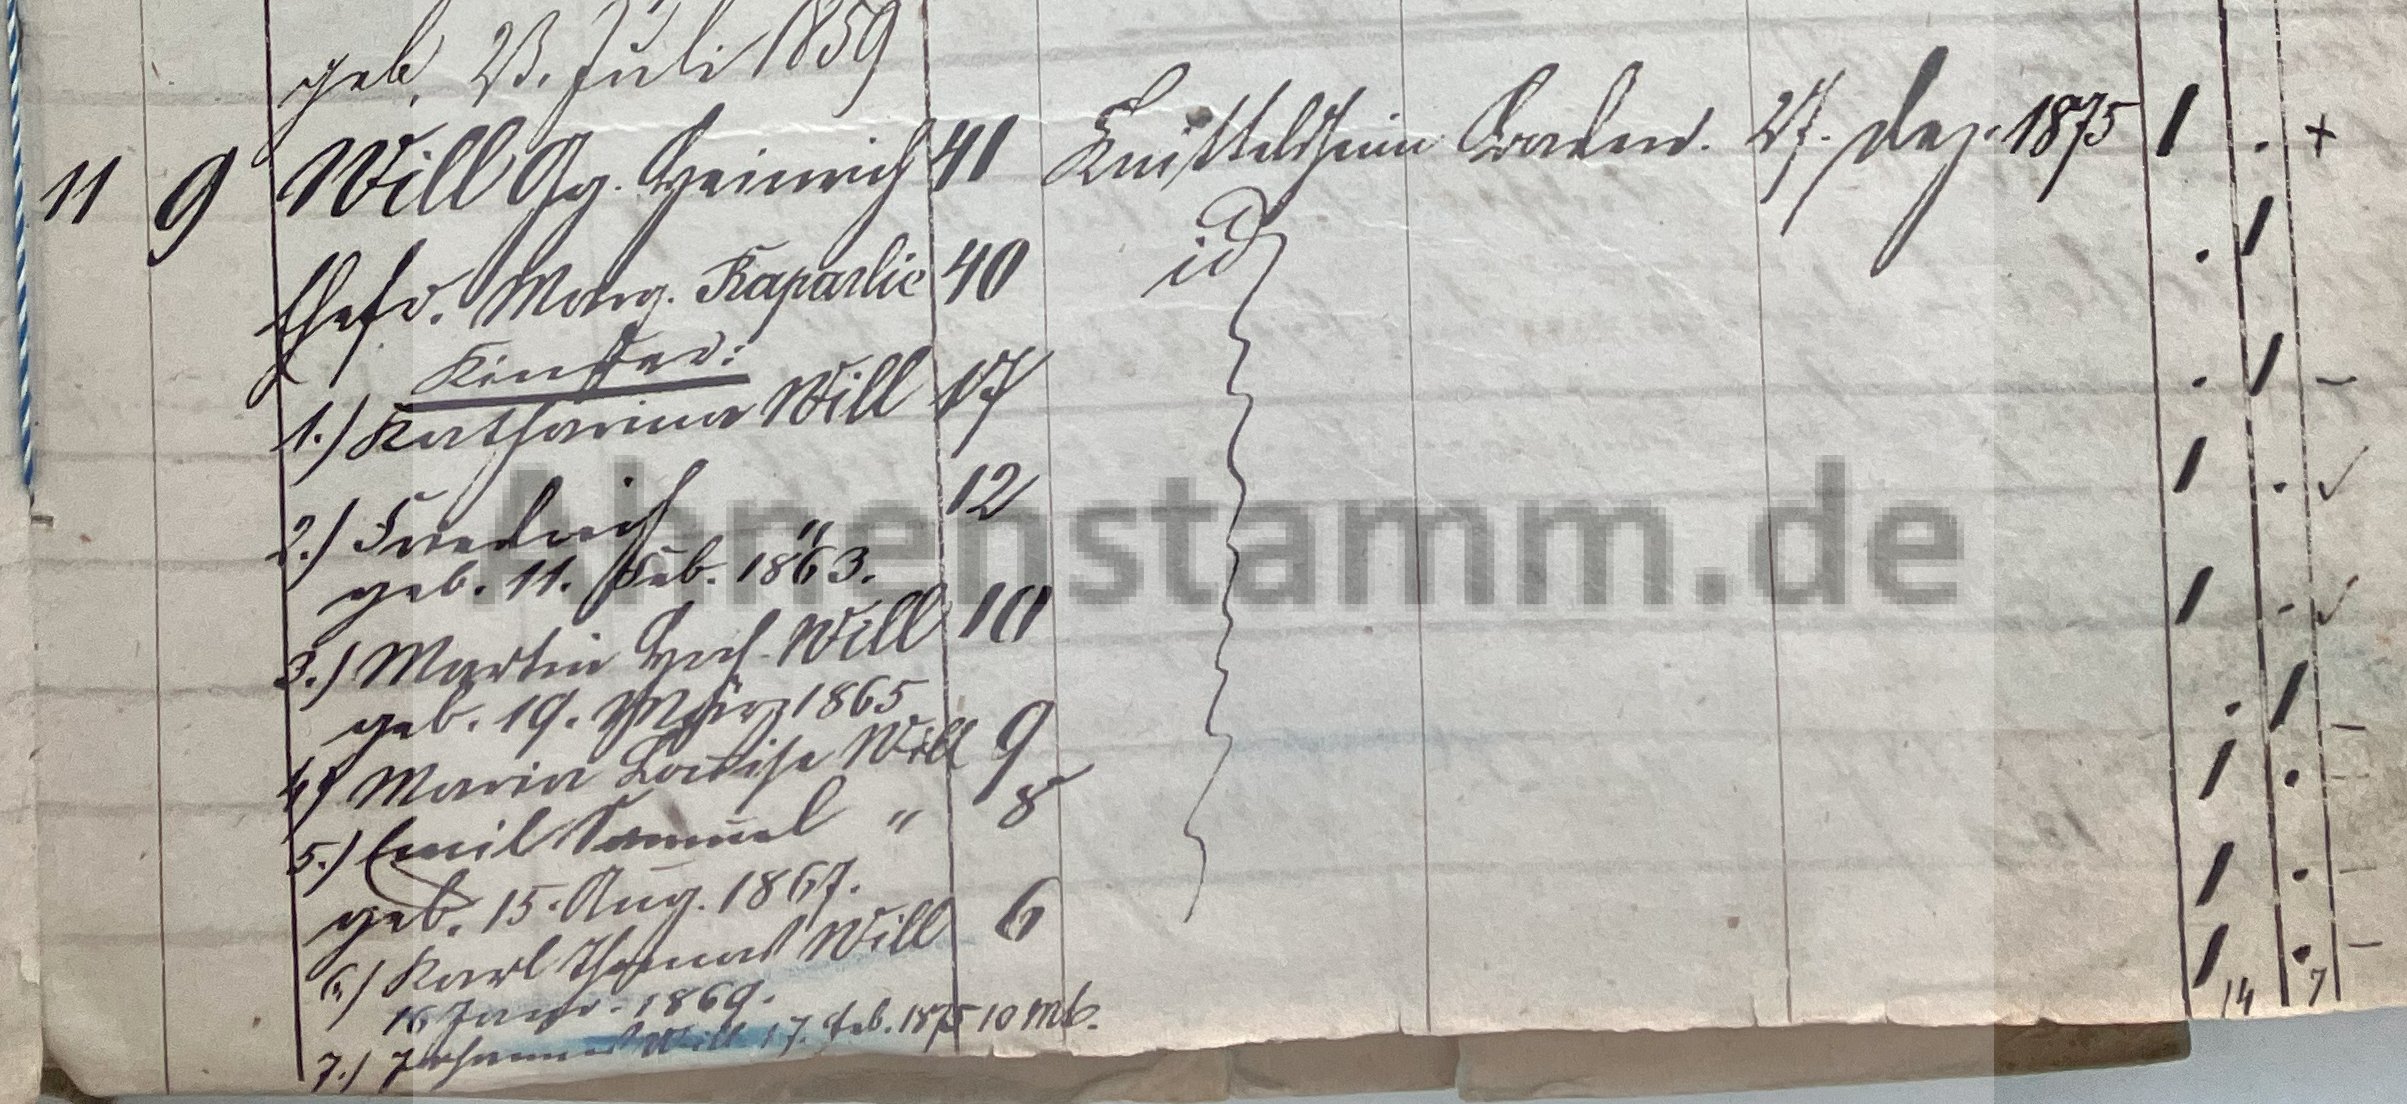 geb. 23. Juli 1859
11 9 Will Gg. Heinrich 41 Knittelsheim Baden. 27. Dez. 1875 1 . +
Ehefr. Marg. Kaparlie 40 id . 1
Kinder:
1.) Katharina Will 17 . 1 –
2.) Friedrich " 12 1 . ✓
geb. 11. Feb. 1863.
3.) Martin Hch. Will 10 1 . ✓
geb. 19. März 1865
4.) Maria Louise Will 9 . 1 –
5.) Emil Samuel " 8 1 . –
geb. 15. Aug. 1867.
6.) Karl Thomas Will 6 1 . –
Janr. 1869.
7.) Johannes Will 17. Feb. 1875 10 Mt. 1 . –
14 7
Ahnenstamm.de